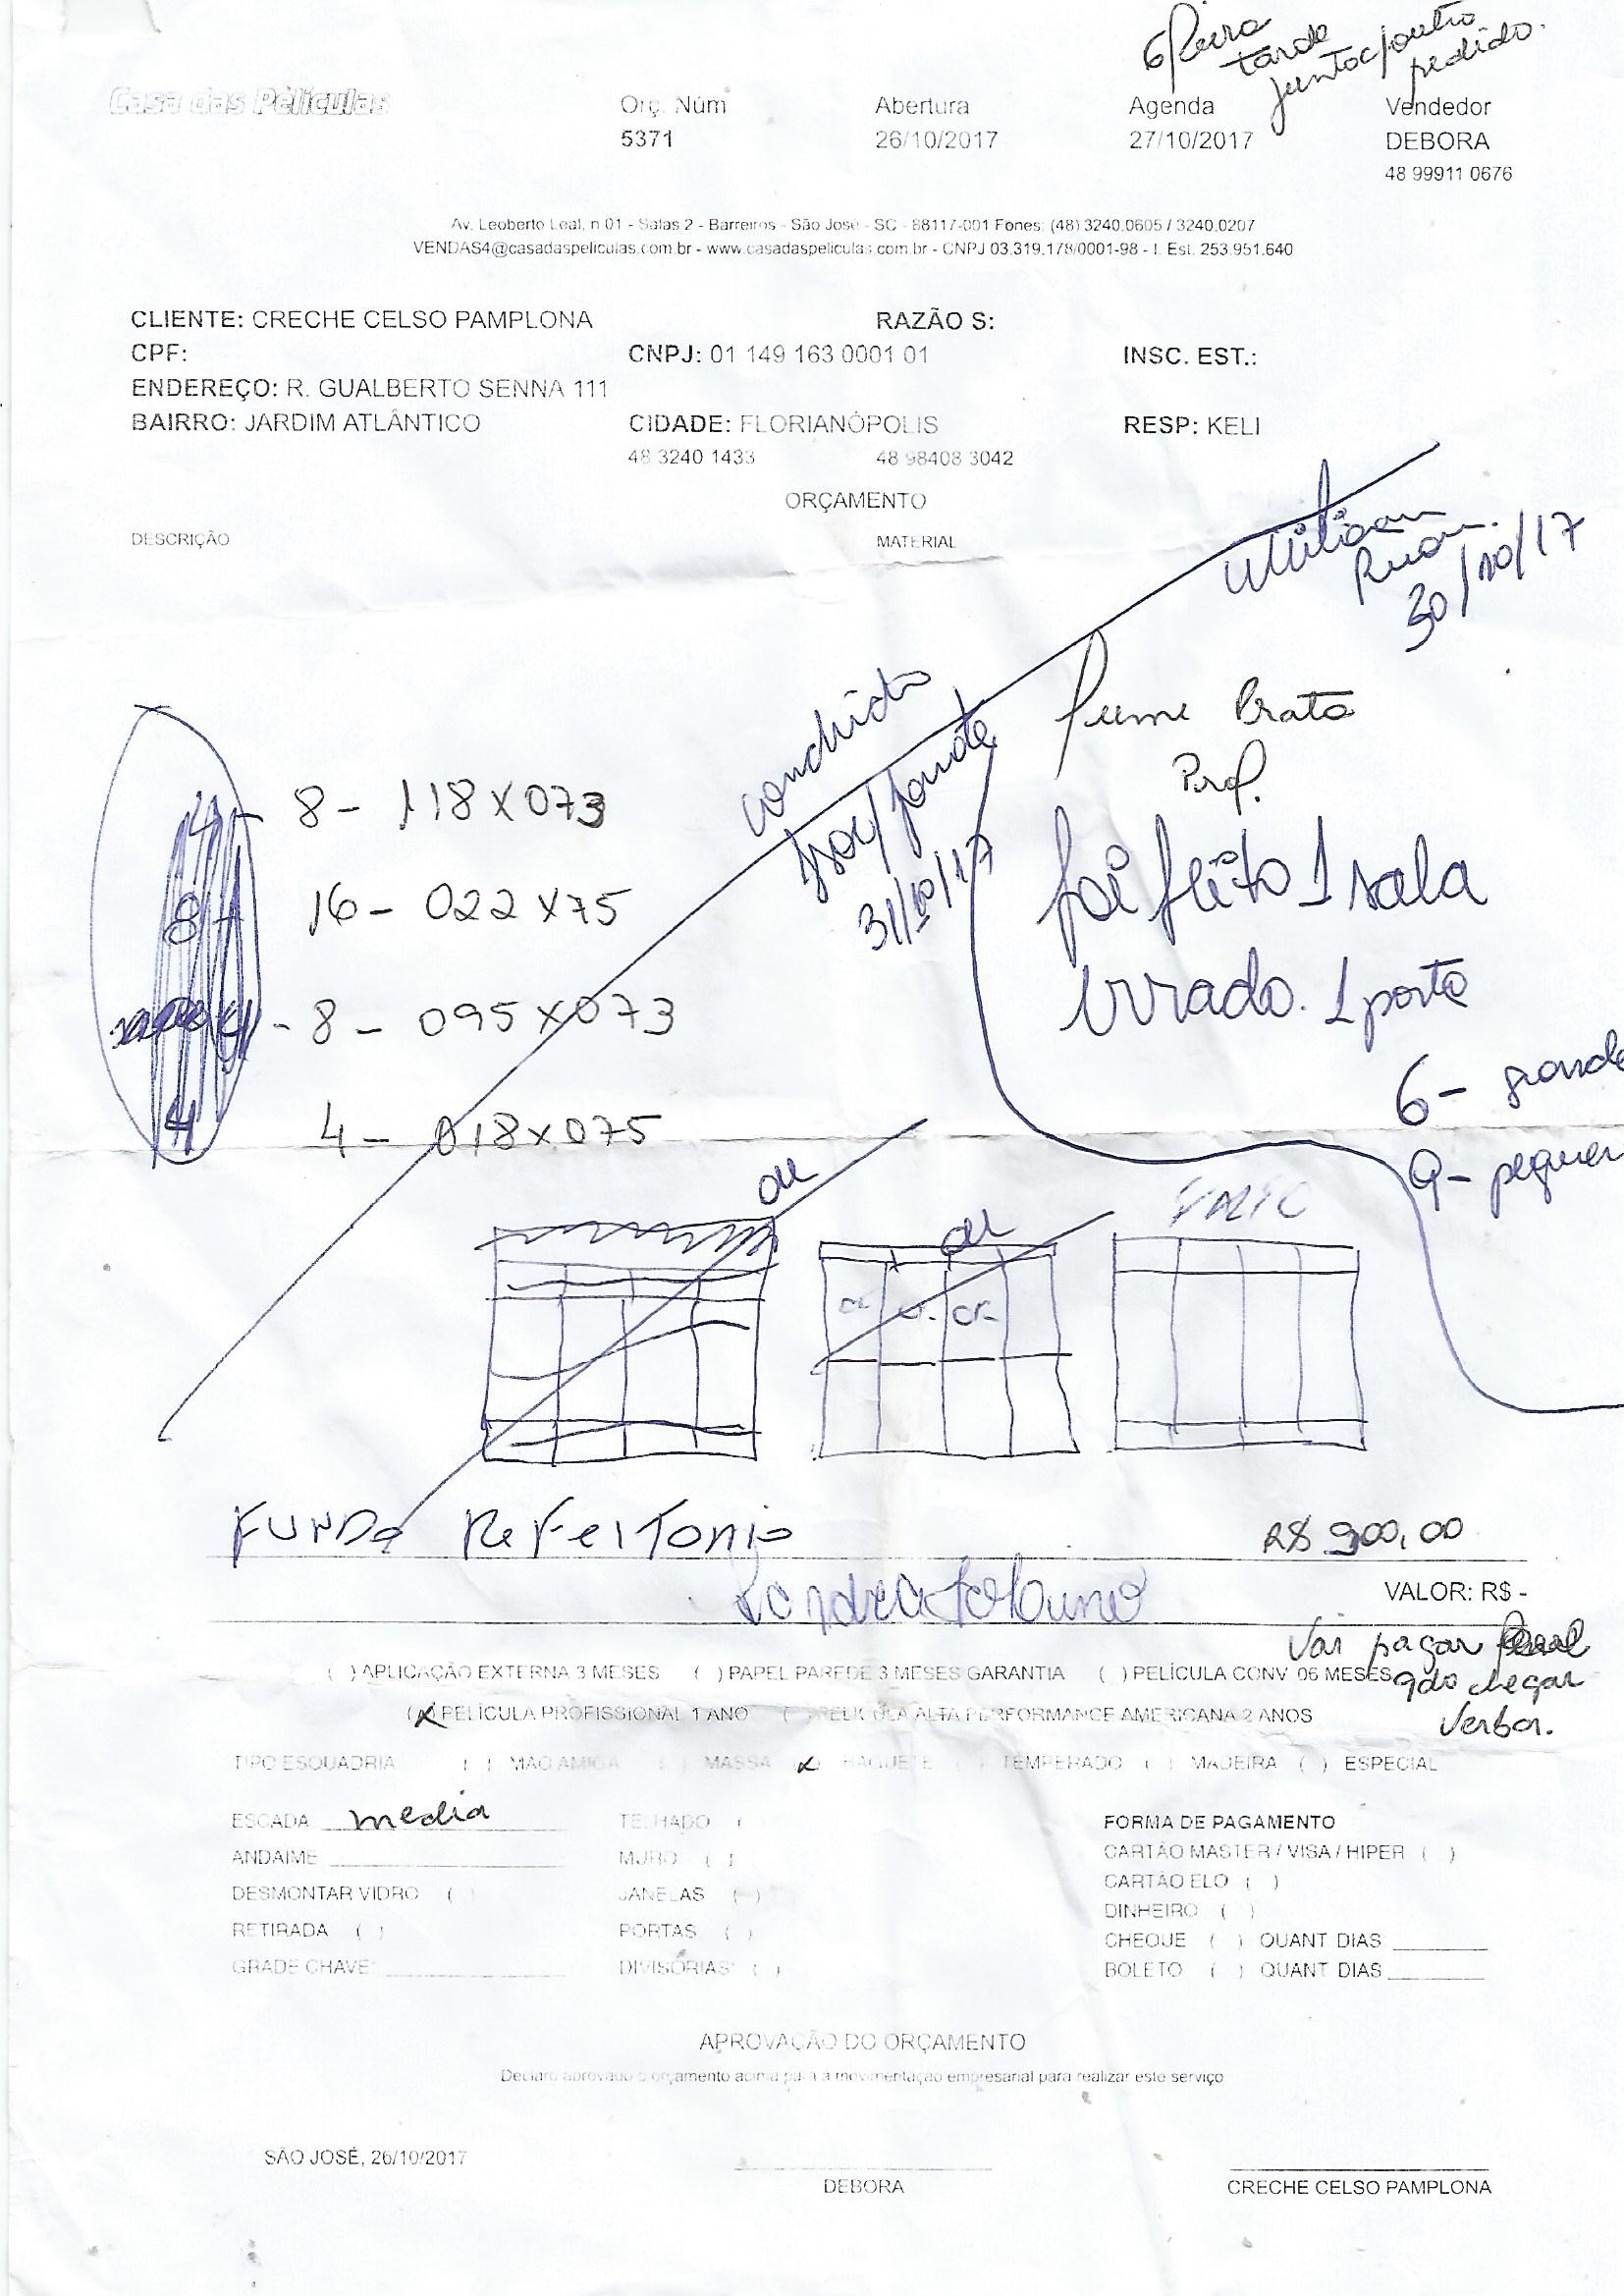 6ª feira
tarde
junto c/ outro
pedido.
Casa das Películas
Orç. Núm Abertura Agenda Vendedor
5371 26/10/2017 27/10/2017 DEBORA
48 99911 0676
Av. Leoberto Leal, n 01 - Salas 2 - Barreiros - São José - SC - 88117-001 Fones: (48) 3240.0605 / 3240.0207
VENDAS4@casadaspeliculas.com.br - www.casadaspeliculas.com.br - CNPJ 03.319.178/0001-98 - I. Est. 253.951.640
CLIENTE: CRECHE CELSO PAMPLONA RAZÃO S:
CPF: CNPJ: 01 149 163 0001 01 INSC. EST.:
ENDEREÇO: R. GUALBERTO SENNA 111
BAIRRO: JARDIM ATLÂNTICO CIDADE: FLORIANÓPOLIS RESP: KELI
48 3240 1433 48 98408 3042
ORÇAMENTO
DESCRIÇÃO MATERIAL
Ruan.
30/10/17
fume Prata
Prof.
31/10/17
4 - 8 - 118 X 073
8 16 - 022 X 75
4 - 8 - 095 X 073
4 4 - 018 X 075
foi feito 1 sala
errado. 1 porta
6 - grande
9 - pequen
ok
ok
ok ok ok
FUNDO REFEITORIO R$ 900,00
VALOR: R$ -
Vai pagar
qdo chegar
Verba.
( ) APLICAÇÃO EXTERNA 3 MESES ( ) PAPEL PAREDE 3 MESES GARANTIA ( ) PELÍCULA CONV 06 MESES
(X) PELÍCULA PROFISSIONAL 1 ANO ( ) PELÍCULA ALTA PERFORMANCE AMERICANA 2 ANOS
TIPO ESQUADRIA ( ) MAO AMIGA ( ) MASSA (X) BAGUETE ( ) TEMPERADO ( ) MADEIRA ( ) ESPECIAL
ESCADA media TELHADO ( ) FORMA DE PAGAMENTO
ANDAIME MURO ( ) CARTÃO MASTER / VISA / HIPER ( )
DESMONTAR VIDRO ( ) JANELAS ( ) CARTÃO ELO ( )
RETIRADA ( ) PORTAS ( ) DINHEIRO ( )
GRADE CHAVE DIVISÓRIAS ( ) CHEQUE ( ) QUANT DIAS
BOLETO ( ) QUANT DIAS
APROVAÇÃO DO ORÇAMENTO
Declaro aprovado o orçamento acima para a movimentação empresarial para realizar este serviço
SÃO JOSÉ, 26/10/2017
DEBORA CRECHE CELSO PAMPLONA